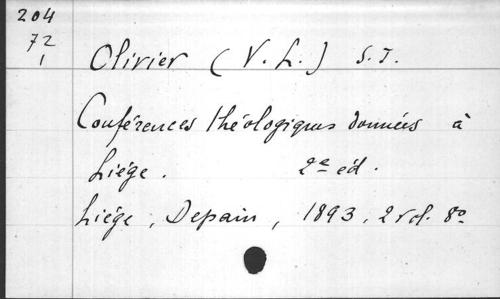 204
72
1
Olivier (V. L.) S. J.
Conférences théologiques données à
Liége. 2e éd.
Liége, Depain, 1893, 2 vol. 8o